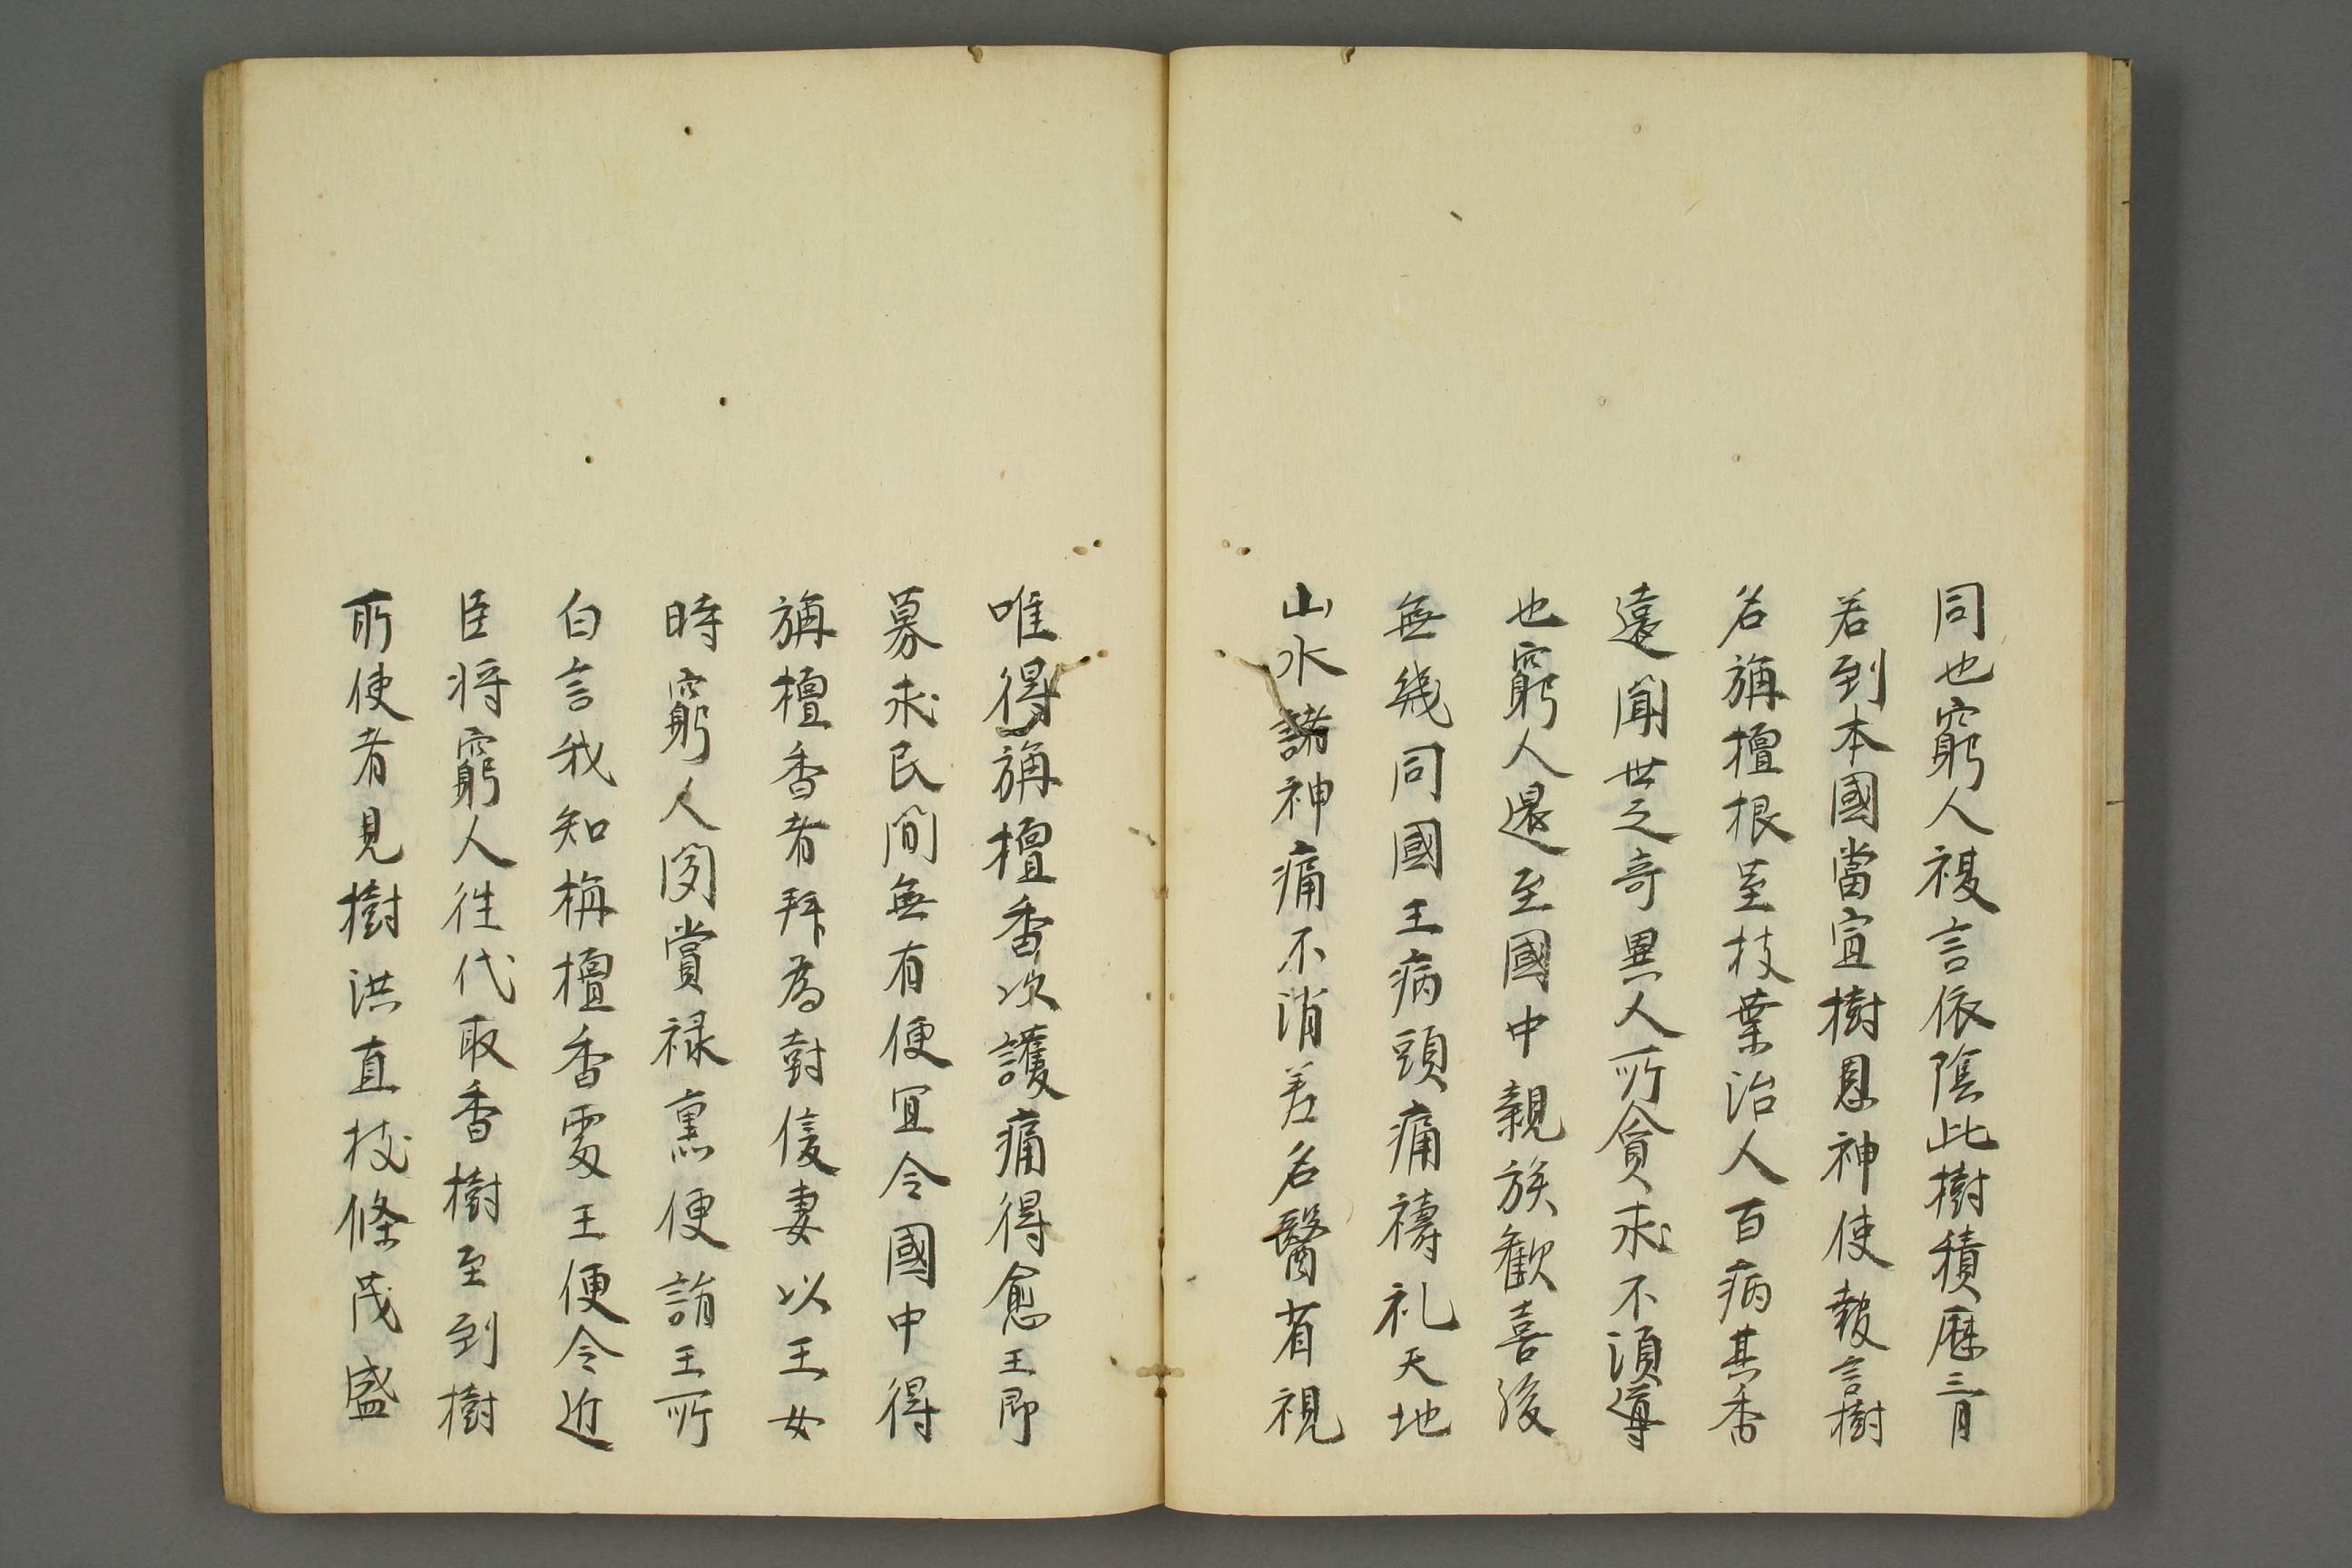 同也窮人複言依陰此樹積歴三月
若到本國當宣樹恩神使報言樹
名旃檀根莖枝葉治人百病其香
遠聞世之奇異人所貪求不湏導
也窮人還至國中親族歓喜後
無幾同國王病頭痛禱礼天地
山水諸神痛不消差名醫省視
唯得旃檀香次護痛得愈王即
募求民間無有便宜令國中得
旃檀香者拜為封侯妻以王女
時窮人聞賞禄熏便詣王所
白言我知栴檀香處王便令近
臣将窮人徃代取香樹至到樹
所使者見樹洪直枝條茂盛